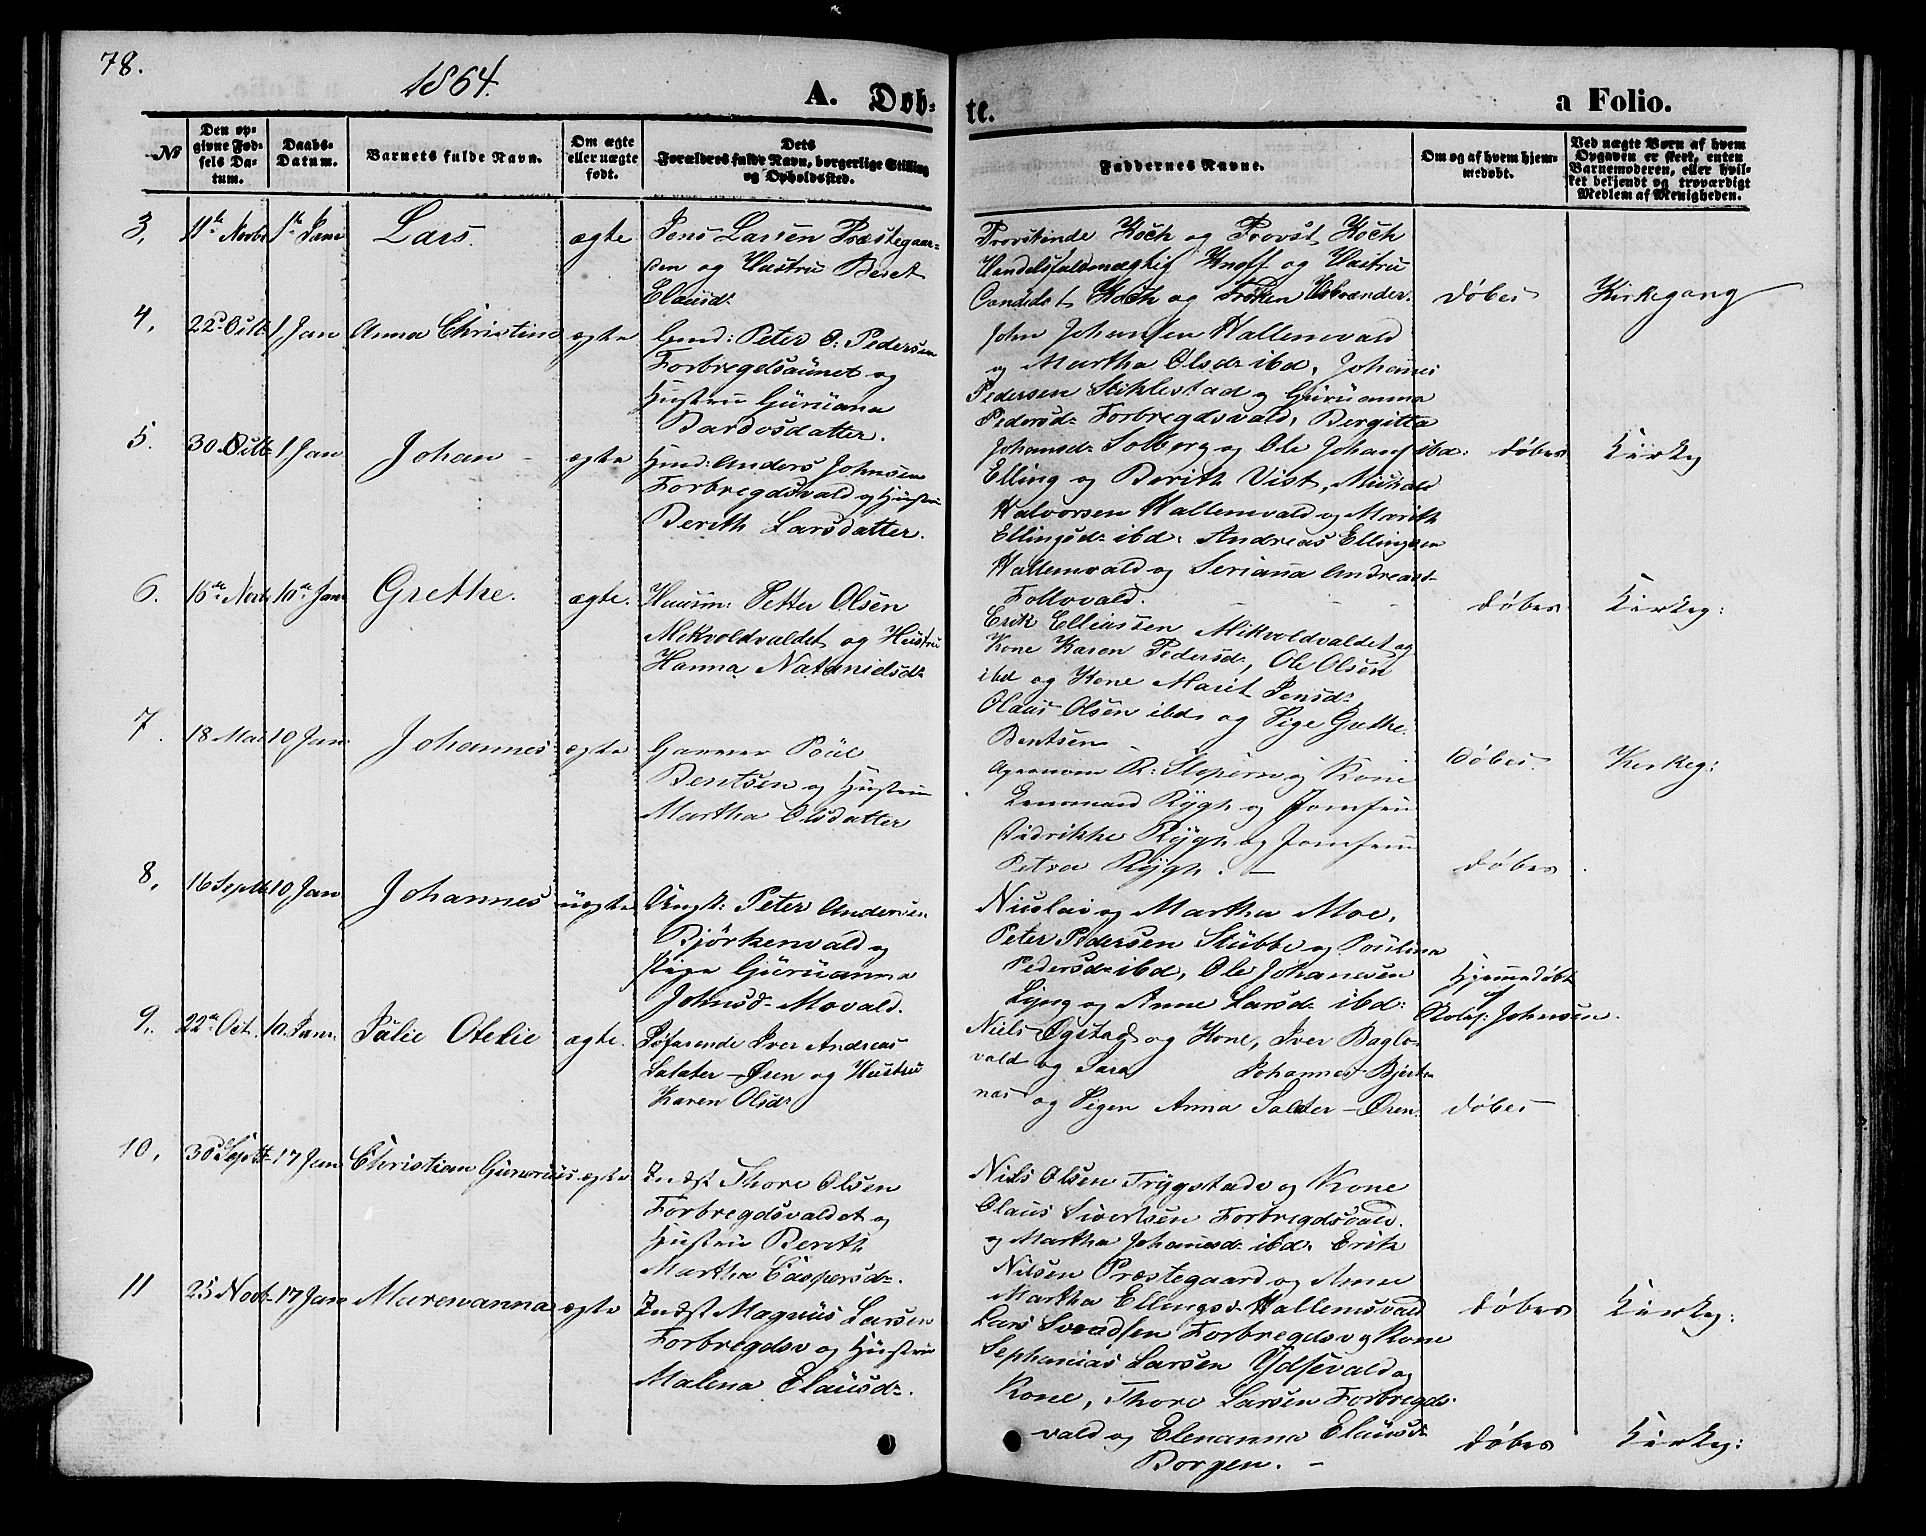 78.
1864.
A. Döb-
te.
a Folio.
№
Den op-
givne Fød-
sels Da-
tum.
Daabs-
Datum.
Barnets fulde Navn.
Om ægte
eller uægte
født.
Dets
Forældres fulde Navn, borgerlige Stilling
og Opholdssted.
Faddernes Navne.
Om og af hvem hjem-
medøbt.
Ved uægte Børn af hvem
Opgaven er skeet, enten
Barnemoderen, eller hvil-
ket bekjendt og troværdigt
Medlem af Menigheden.
3, 11te Novbr 1te Janr Lars. ægte
Jens Larsen Præstegaar-
den og Hustru Beret
Elausd:
Provstinde Koch og Provst Koch
Handelsfuldmægtig Knoff og Hustru
Candidat Koch og Frøken døbes Kirkegang
4, 22d Octb 1 Jan Anna Christine ægte
Gmd: Peter O: Pedersen
Forbregdsaunet og
Hustru Guruana
Bardosdatter.
John Johansen Hallemvald
og Martha Olsd: ibd, Johanes
Pedersen Stiklestad og Guruanna
Pedersd: Forbregdsvald, Bergitta
Johansd: Solberg og Ole Johans ibd: døbes Kirkeg
5. 30 Octb 1 Jan Johan - ægte
Hmd: Anders Johnsen
Forbregdsvald og Hustru
Berith Larsdatter.
Elling og Berith Vist, Mikal
Halvorsen Hallemvald og Marith
Ellingsd: ibd: Andreas Ellingsen
Hallemvald og Seriana Andreasd-
Follovald. døbes Kirkeg:
6. 16de Novb 10de Janr Grethe. ægte.
Huusm: Petter Olsen
Mikvoldvaldet og Hustru
Hanna Natanielsd:
Erik Elliassen Mikvoldvaldet og
Kone Karen Pedersd:, Ole Olsen
ibd og Kone Marit Jensd:
Olaus Olsen ibd, og Pige Grethe
Bentsen døbes. Kirkeg:
7. 18 Mai 10 Jan Johannes ægte
Garver Poul
Bentsen og Hustru
Martha Olsdatter
Agronom R: og Kone
Lensmand Rygh og Jomfru
Didrikke Rygh og Jomfru
Petra Rygh. - døbes
8, 16 Septb 10 Jan Johannes uægte
Ungk: Peter Andersen
Bjørkenvald og
Pige Guruanna
Johnsd: Movald.
Nicolai og Martha Moe,
Peter Pedersen Stubbe og Paulina
Pedersd: ibd, Ole Johansen
Lyng og Anne Larsd: ibd: Hjemmedøbt
af
Johnsen.
9,. 22de Oct. 10. Janr. Julie Otelie ægte.
Søfarende Iver Andreas
Salater-Ören og Hustru
Karen Olsd:
Niels Øgstad og Kone, Iver Baglo-
vald og Sara Johannes Bjert-
næs og Pigen Anna Salater-Ören. døbes
10, 30d Septb 17 Jan Christian Gunerius ægte
Indst Thore Olsen
Forbregdsvaldet og
Hustru Berith
Martha Caspersd:.
Niels Olsen Trygstads og Kone
Olaus Sivertsen Forbregdsvald.
og Martha Johanesd: ibd. Erik
Nilsen Præstegaard og Anne
Martha Ellingsd: Hallemsvald døbes Kirkeg:
11 25 Novb 17 Jan Marenanna ægte
Indst Magnus Larsen
Forbregdsv og Hustru
Malena Elausd:.
Lars Svendsen Forbregdsv og Kone
Sephanias Larsen Ydsevald og
Kone, Thore Larsen Forbregds-
vald og Elenanna Elausd:
Borgen. - døbes Kirkeg: